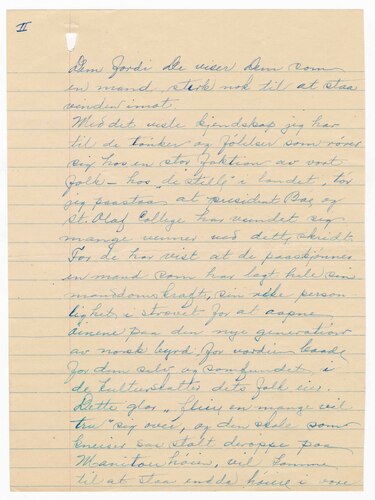 II
Dem fordi De viser Dem som
en mand, sterk nok til at staa
vinden imot.
Med det vesle kjendskap jeg har
til de tanker og følelser som rører
sig hos en stor faktion av vort
folk — hos "de stille" i landet, tør
jeg paastaa at president Boe og
St. Olaf College har vundet sig
mange venner ved dette skridt.
For de har vist at de paaskjønner
en mand som har lagt hele sin
manddomskraft, sin rike person-
lighet i strevet for at aapne
øinene paa den nye generation
av norsk byrd for værdien baade
for dem selv og samfundet i
de kulturskatter dets folk eier.
Dette glær flere en mange vil
tru sig over, og den skole som
kneiser saa stolt deroppe paa
Manitou høien, vil komme
til at staa endda høiere i vore